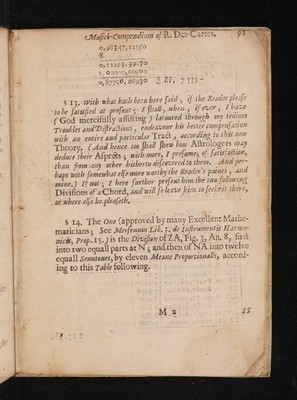 Musick-Compendium of R. Des-Cartes. 91
0,98347,12560
8
0,12293,39070
1,00000,00000
0,87706,60930 ZF, 7535-
§ 13. With what hath been here said, if the Reader please
to be satisfied at present; I shall, when, if ever, I have
(God mercifully assisting) laboured through my tedious
Troubles and Distractions, endeavour his better compensation
with an entire and particular Tract, according to this new
Theory, (And hence too shall shew how Astrologers may
deduce their Aspects; with more, I presume, of satisfaction,
than from any other hitherto discovered to them. And per-
haps with somewhat else more worthy the Reader's paines, and
mine,) If not; I here further present him the two following
Divisions of a Chord, and will so leave him to seek it there,
or where else he pleaseth.
§ 14. The One (approved by many Excellent Mathe-
maticians; See Mersennus Lib. 1. de Instrumentis Harmo-
nicis, Prop. 15.) is the Division of ZA, Fig. 3, An. 8, first
into two equall parts at N; and then of NA into twelve
equall Semitones, by eleven Meane Proportionalls, accord-
ing to this Table following.
M 2 15